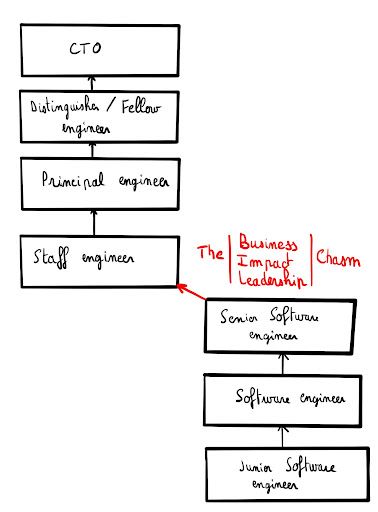 CTO
Distinguished / Fellow
engineer
Principal engineer
Staff engineer
The | Business | Chasm
Impact
Leadership
Senior Software
engineer
Software engineer
Junior Software
engineer